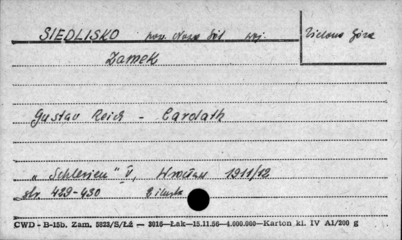 SIEDLISKO pow. Nowa Sól woj. Zielona Góra
Zamek
Gustav Reich - Carolath
"Schlesien" V, Wrocław 1911/12
str. 429-430 2 ilustr.
CWD - B-15b. Zam. 5823/S/Łż — 3016—Łak—15.11.56—4.000.000—Karton kl. IV A1/200 g